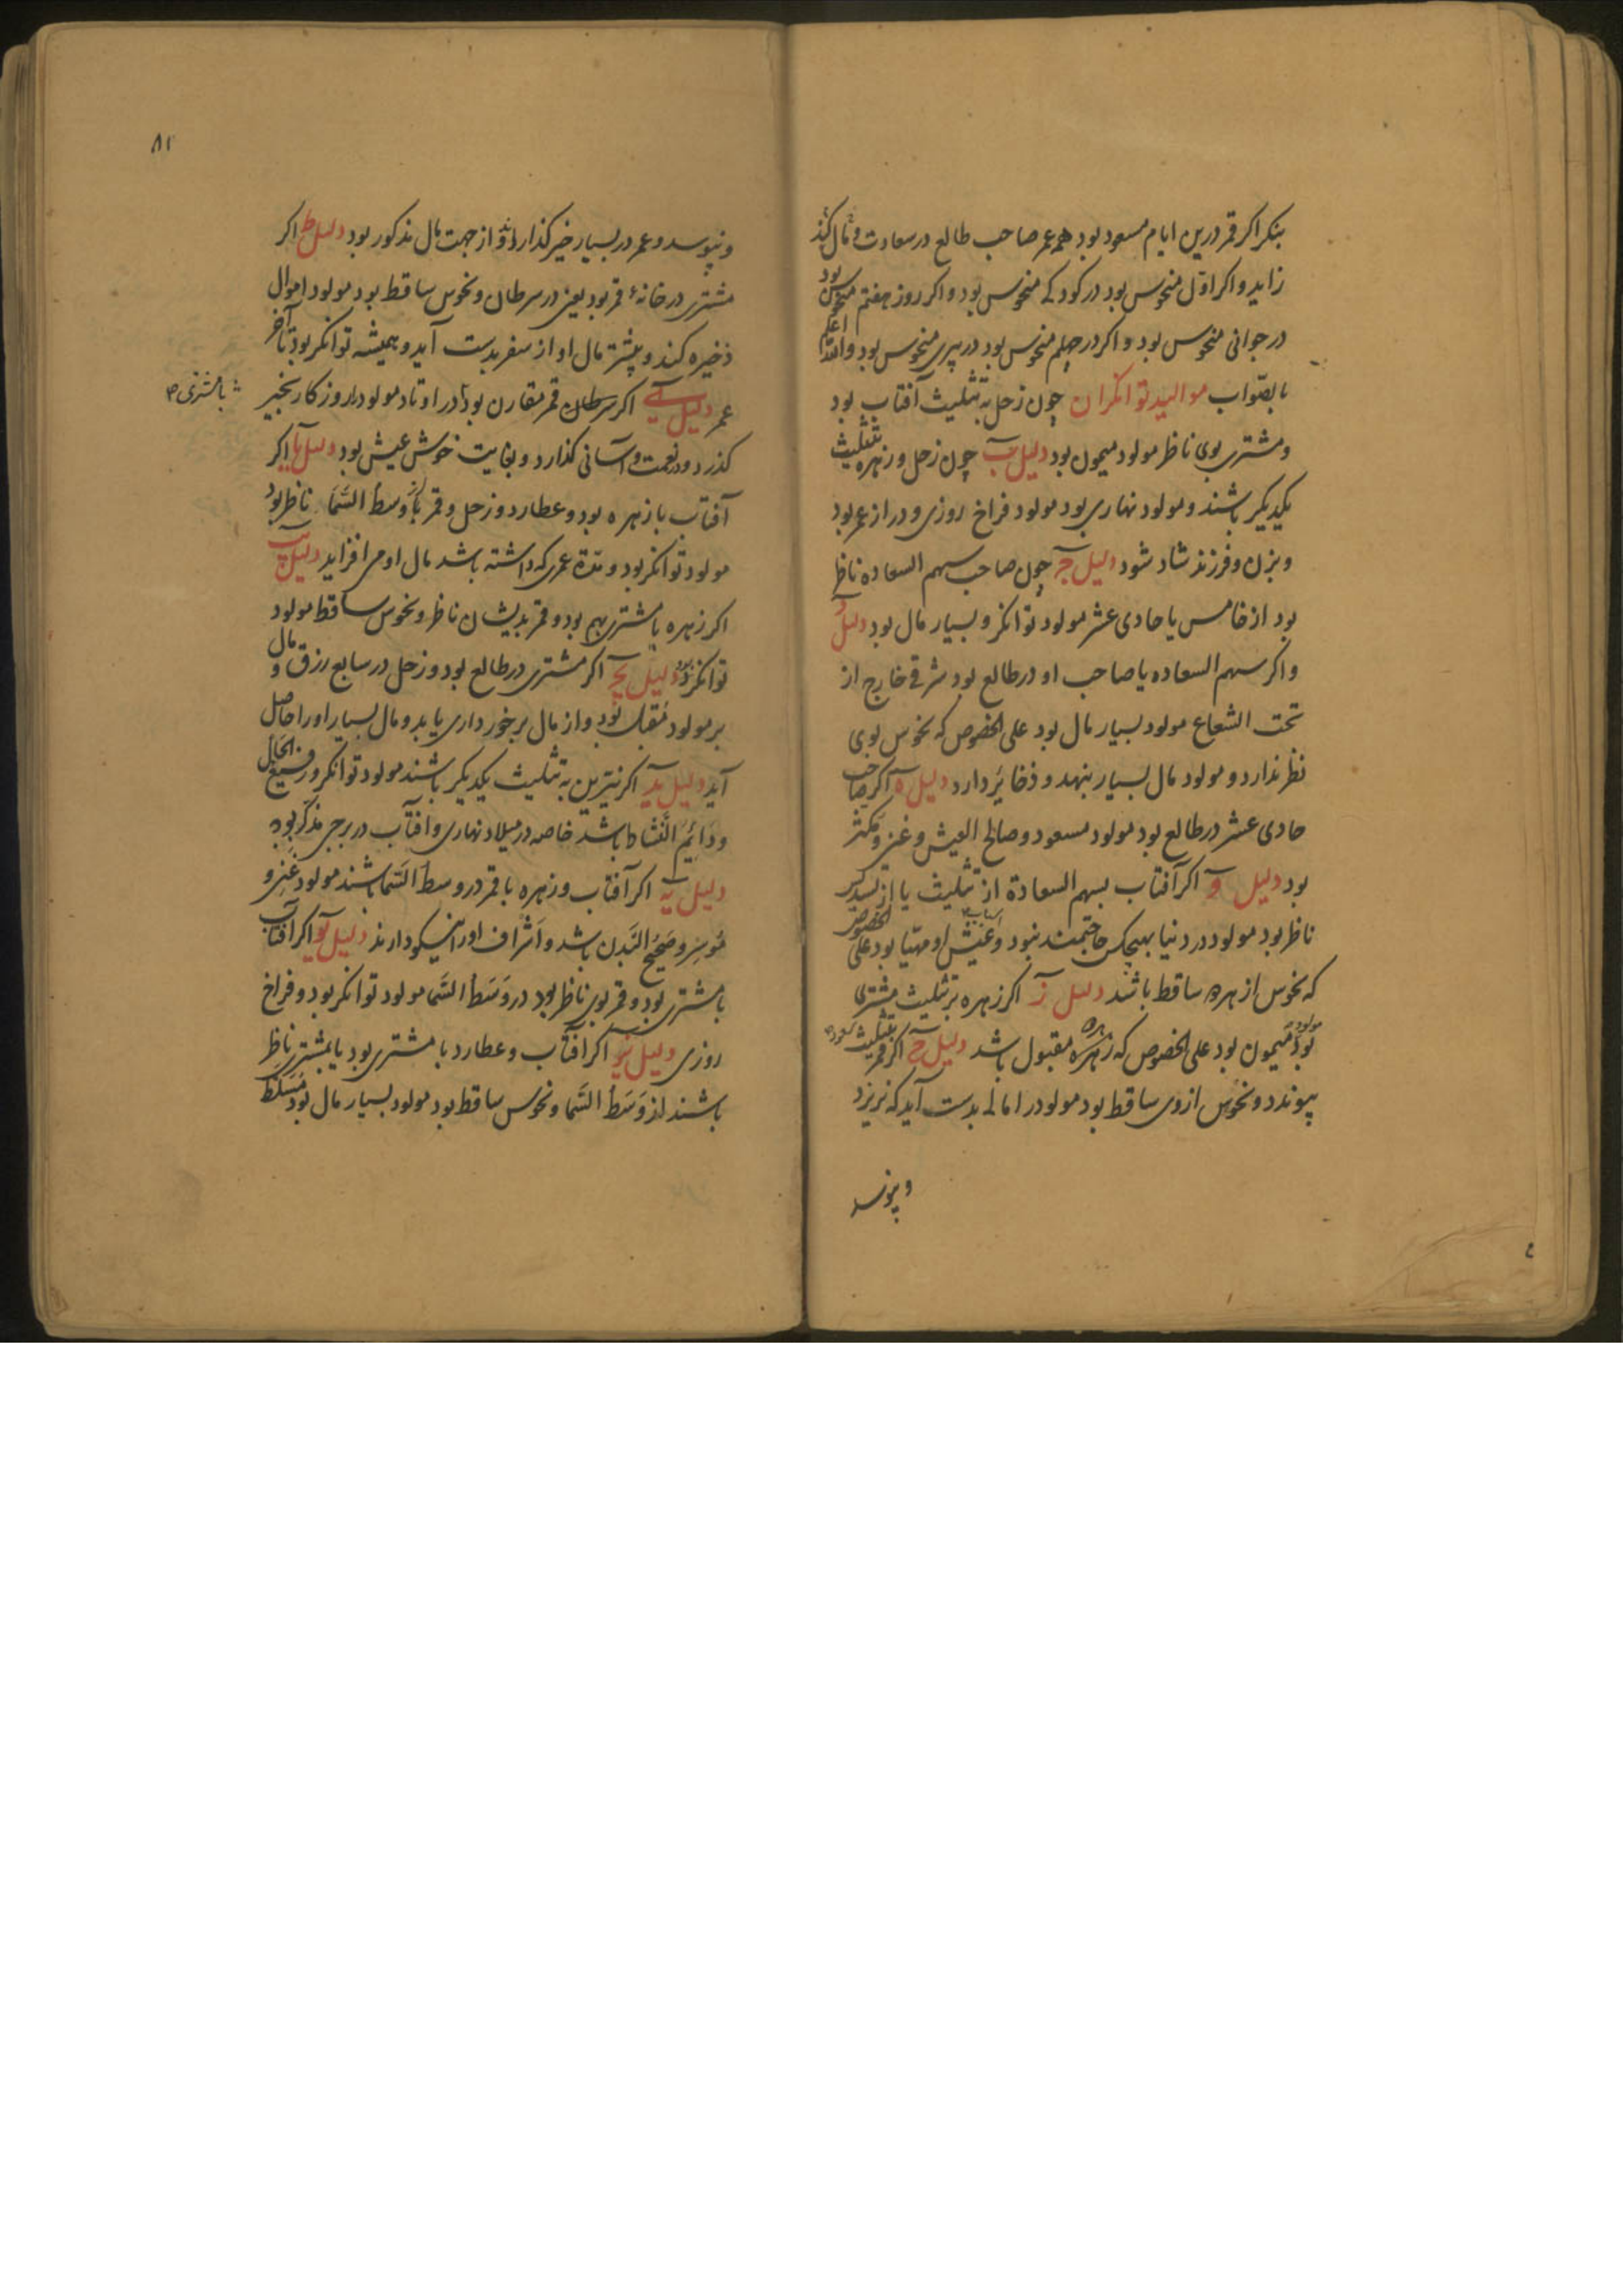 بنکر اکر قمر درین ایام مسعود بود همه عمر صاحب طالع در سعادت و مال کذ
زاید و اکر اول منحوس بود در کودکے منحوس بود و اکر روز هفتم منحوس بود
در جوانی منحوس بود و اکر در چهلم منحوس بود در پیری منحوس بود والله اعلم
بالصواب موالید توانکران چون زحل به تثلیث آفتاب بود
و مشتری بوی ناظر مولود میمون بود دلیل ب چون زحل و زهره بتثلیث
یکدیکر باشند و مولود نهاری بود مولود فراخ روزی و دراز عمر بود
و بزن و فرزند شاد شود دلیل ج چون صاحب سهم السعاده ناظر
بود از خامس یا حادی عشر مولود توانکر و بسیار مال بود دلیل د
و اکر سهم السعاده یا صاحب او در طالع بود شرقے خارج از
تحت الشعاع مولود بسیار مال بود علی الخصوص که نحوس بوی
نظر ندارد و مولود مال بسیار بنهد و ذخایر دارد دلیل ه اکر صاحب
حادی عشر در طالع بود مولود مسعود و صالح العیش و غنی و مکثر
بود دلیل و اکر آفتاب بسهم السعادة از تثلیث یا از تسدیس
ناظر بود مولود در دنیا بهیچکس حاجتمند نبود و اسباب عیش او مهیا بود علی الخصوص
که نحوس از بهره ساقط باشند دلیل ز اکر زهره بر تثلیث مشتری
بود مولود میمون بود علی الخصوص که زهره مقبول باشد دلیل ح اکر قمر بتثلیث
پیوندد و نحوس ازوی ساقط بود مولود را مالے بدست آید که نریزد
و نپوسد
۸۲
و نپوسد و عمر در بسیار خیر کذارد و از جهت مال مذکور بود دلیل ط اکر
مشتری در خانهٔ قمر بود یعنی در سرطان و نحوس ساقط بود مولود اموال
ذخیره کند و بیشتر مال او از سفر بدست آید و همیشه توانکر بود تا آخر
عمر دلیل ی اکر سرطان قمر مقارن بود در اوتاد مولود را روزکار بخیر
با مشتری
کذرد و در نعمت و آسانی کذارد و بغایت خوش عیش بود دلیل یا اکر
آفتاب با زهره بود و عطارد و زحل و قمر باوسط السما ناظر بود
مولود توانکر بود و مدة عمری که داشته باشد مال او می افزاید دلیل یب
اکر زهره با مشتری بهم بود و قمر بدیشان ناظر و نحوس ساقط مولود
توانکر بود دلیل یج اکر مشتری در طالع بود و زحل در سابع رزق و مال
بر مولود مقبل بود و از مال برخورداری یابد و مال بسیار او را حاصل
آید دلیل ید اکر نیّرین به تثلیث یکدیکر باشند مولود توانکر و رفیع الحال
و دائم النشاط باشد خاصه در میلاد نهاری و آفتاب در برجی مذکر بود
دلیل یه اکر آفتاب و زهره با قمر در وسط السما باشند مولود غنی و
موسر و صحیح البدن باشد و اشراف او را نیکو دارند دلیل یو اکر آفتاب
با مشتری بود و قمر بوی ناظر بود در وسط السما مولود توانکر بود و فراخ
روزی دلیل یز اکر آفتاب و عطارد با مشتری بود یا بمشتری ناظر
باشند از وسط السما و نحوس ساقط بود مولود بسیار مال بود مسلط